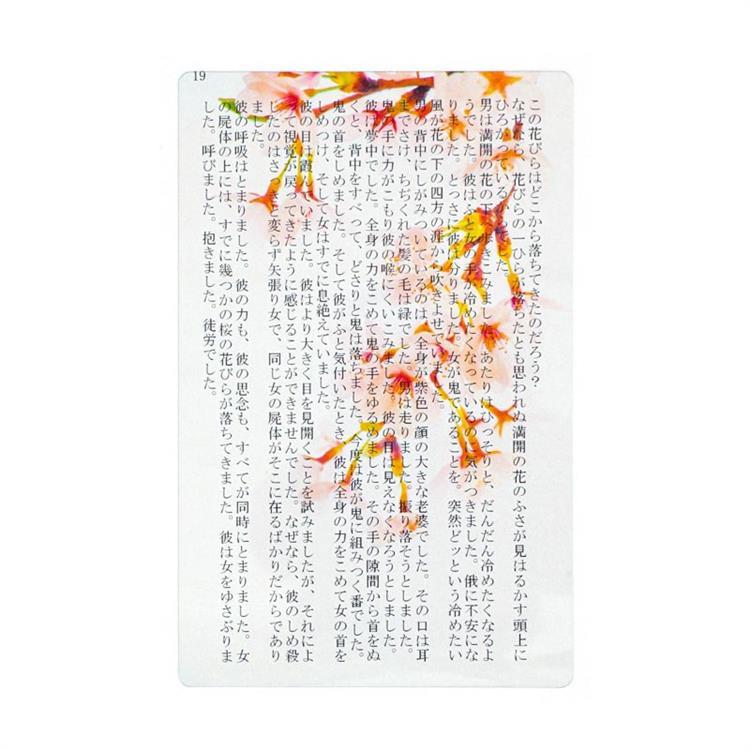 19
この花びらはどこから落ちてきたのだろう？
なぜなら、花びらの一ひらが落ちたとも思われぬ満開の花のふさが見はるかす頭上に
ひろがっているからでした。
男は満開の花の下へ歩きこみました。あたりはひっそりと、だんだん冷めたくなるよ
うでした。彼はふと女の手が冷めたくなっているのに気がつきました。俄に不安にな
りました。とっさに彼は分りました。女が鬼であることを。突然どッという冷めたい
風が花の下の四方の涯から吹きよせていました。
男の背中にしがみついているのは、全身が紫色の顔の大きな老婆でした。その口は耳
までさけ、ちぢくれた髪の毛は緑でした。男は走りました。振り落そうとしました。
鬼の手に力がこもり彼の喉にくいこみました。彼の目は見えなくなろうとしました。
彼は夢中でした。全身の力をこめて鬼の手をゆるめました。その手の隙間から首をぬ
くと、背中をすべって、どさりと鬼は落ちました。今度は彼が鬼に組みつく番でした。
鬼の首をしめました。そして彼がふと気付いたとき、彼は全身の力をこめて女の首を
しめつけ、そして女はすでに息絶えていました。
彼の目は霞んでいました。彼はより大きく目を見開くことを試みましたが、それによ
って視覚が戻ってきたように感じることができませんでした。なぜなら、彼のしめ殺
したのはさっきと変らず矢張り女で、同じ女の屍体がそこに在るばかりだからであり
ました。
彼の呼吸はとまりました。彼の力も、彼の思念も、すべてが同時にとまりました。女
の屍体の上には、すでに幾つかの桜の花びらが落ちてきました。彼は女をゆさぶりま
した。呼びました。抱きました。徒労でした。